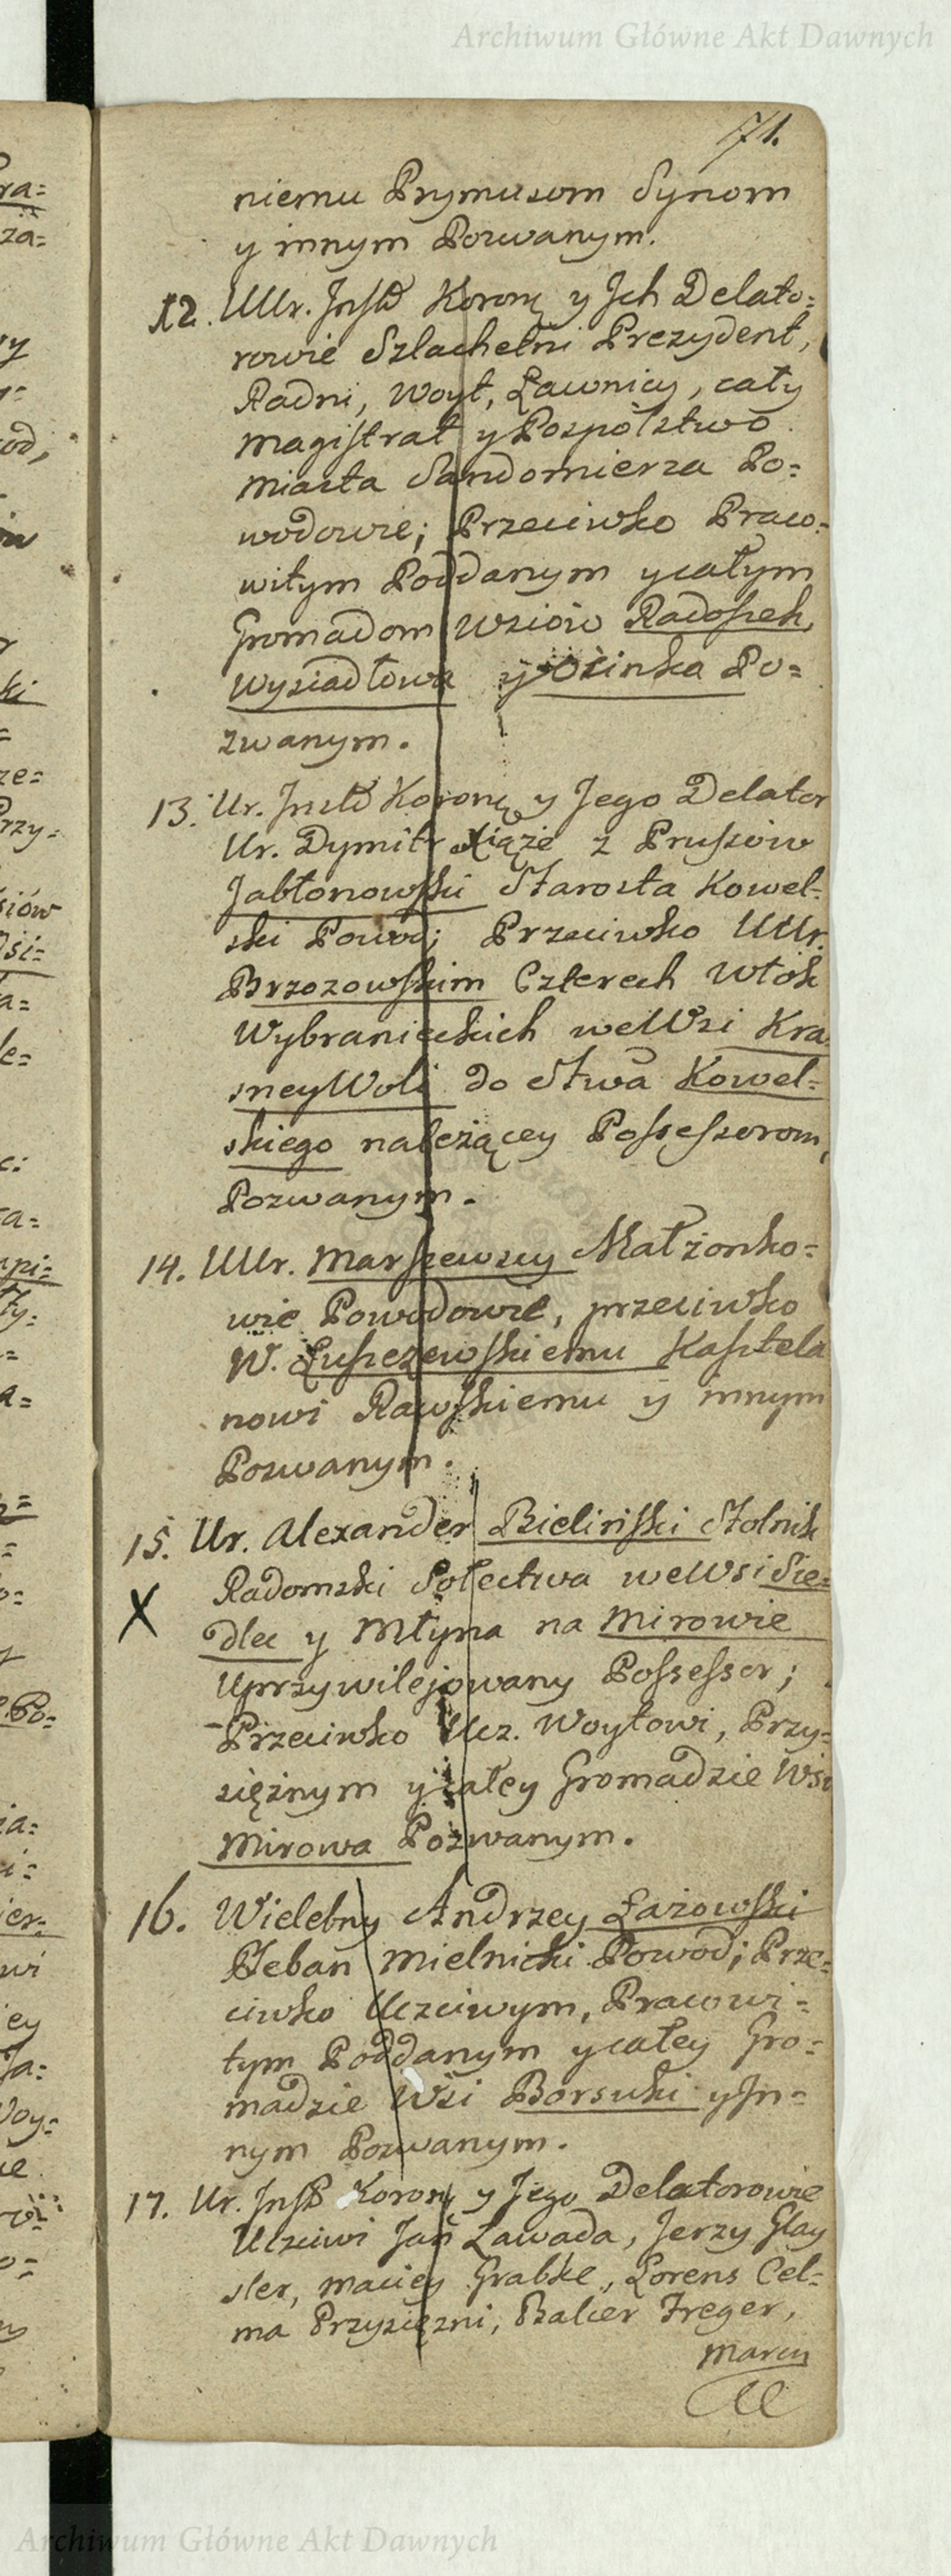 Archiwum Główne Akt Dawnych
71.
niemu Prymusom Synom
y innym Pozwanym.
12. UUr. Jnst Korony y Jch Delato=
rowie Szlachetni Prezydent,
Radni, Woyt, Ławnicy, cały
Magistrat y Pospolstwo
Miasta Sandomierza Po=
wodowie; Przeciwko Praco=
witym Poddanym ycałym
Gromadom Wsiow Radoszek,
Wysiadłowa y Ozinka Po=
zwanym.
13. Ur. Jnst Korony y Jego Delator
Ur. Dymitr Xiąże z Prussow
Jabłonowski Starosta Kowel=
ski Powod; Przeciwko UUr.
Brzozowskim Czterech Włok
Wybranieckich weWsi Kra
sneyWoli do Stwa Kowel=
skiego należącey Possessorom,
Pozwanym.
14. UUr. Marszewscy Małżonko=
wie Powodowie, przeciwko
W. Łuszczewskiemu Kasztela
nowi Rawskiemu y innym
Pozwanym.
15. Ur. Alexander Bieliński Stolnik
Radomski Sołectwa weWsi Sie=
X
dlec y Młyna na Mirowie
Uprzywilejowany Possessor;
Przeciwko Ucz. Woytowi, Przy=
siężnym ycałey Gromadzie Wsi
Mirowa Pozwanym.
16. Wielebny Andrzey Łazowski
Pleban Mielnicki Powod; Prze=
ciwko Uczciwym, Pracowi=
tym Poddanym ycałey Gro=
madzie Wsi Borsuki yJn=
nym Pozwanym.
17. Ur. Jnst Korony y Jego Delatorowie
Uczciwi Jan Zawada, Jerzy Glay
sler, Maciey Grabke, Lorens Cel=
ma Przysiężni, Balcer Freger,
Marcin
Archiwum Główne Akt Dawnych